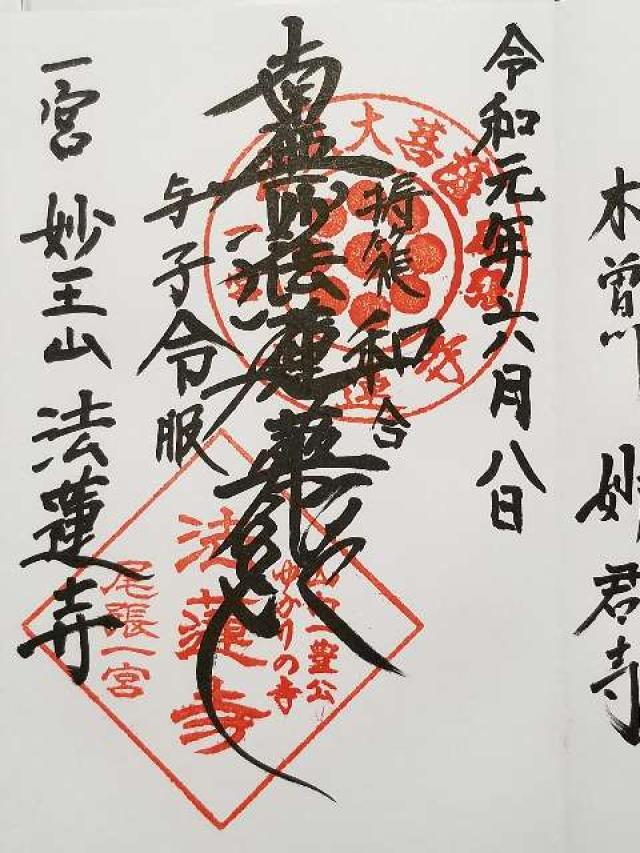 木曽川 妙君寺
令和元年六月八日
和合
南無妙法蓮華経
与子令服
一宮 妙王山 法蓮寺
大菩薩
山内一豊公
ゆかりの寺
法蓮寺
尾張一宮